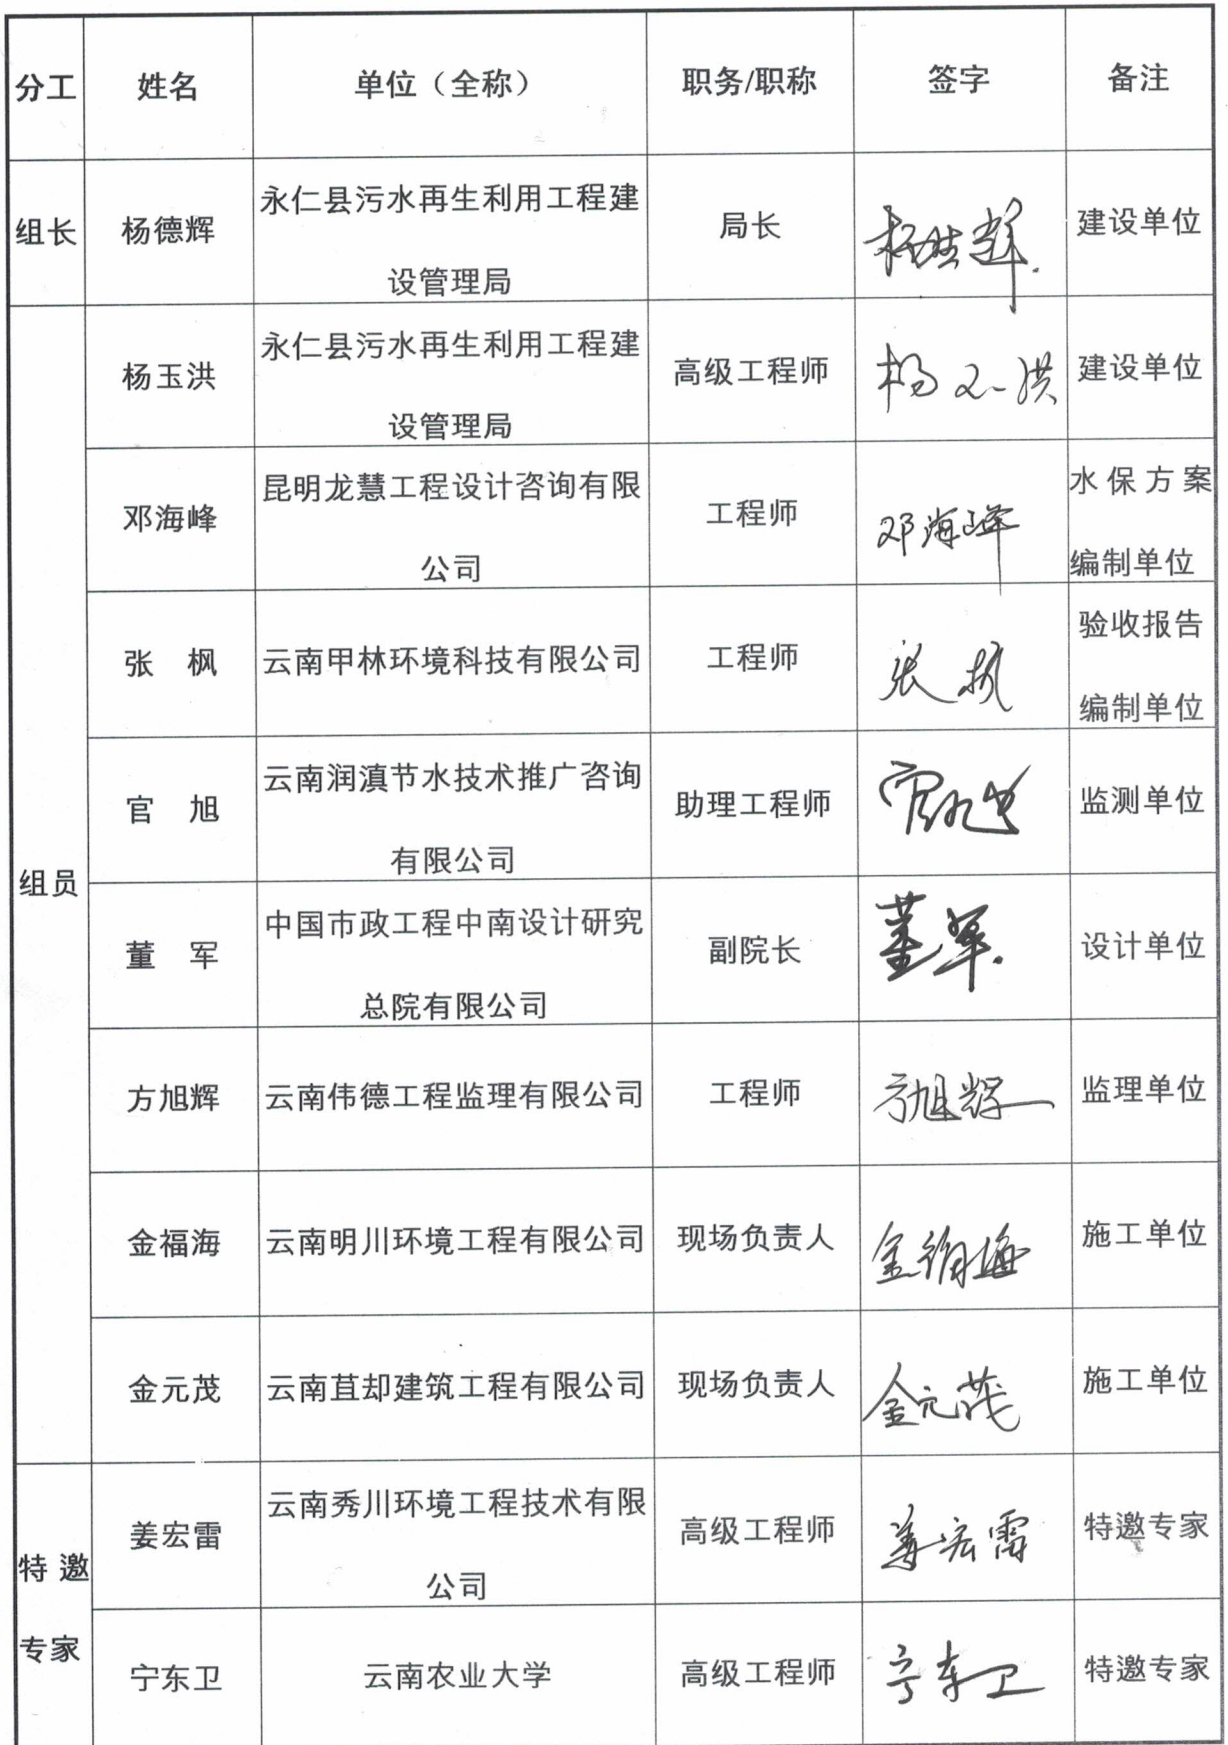 分工 姓名 单位（全称） 职务/职称 签字 备注
组长 杨德辉 永仁县污水再生利用工程建 局长 杨德辉 建设单位
设管理局
组员 杨玉洪 永仁县污水再生利用工程建 高级工程师 杨玉洪 建设单位
设管理局
邓海峰 昆明龙慧工程设计咨询有限 工程师 邓海峰 水保方案
公司 编制单位
张 枫 云南甲林环境科技有限公司 工程师 张枫 验收报告
编制单位
官 旭 云南润滇节水技术推广咨询 助理工程师 官旭 监测单位
有限公司
董 军 中国市政工程中南设计研究 副院长 董军 设计单位
总院有限公司
方旭辉 云南伟德工程监理有限公司 工程师 方旭辉 监理单位
金福海 云南明川环境工程有限公司 现场负责人 金福海 施工单位
金元茂 云南苴却建筑工程有限公司 现场负责人 金元茂 施工单位
特邀 姜宏雷 云南秀川环境工程技术有限 高级工程师 姜宏雷 特邀专家
公司
专家 宁东卫 云南农业大学 高级工程师 宁东卫 特邀专家